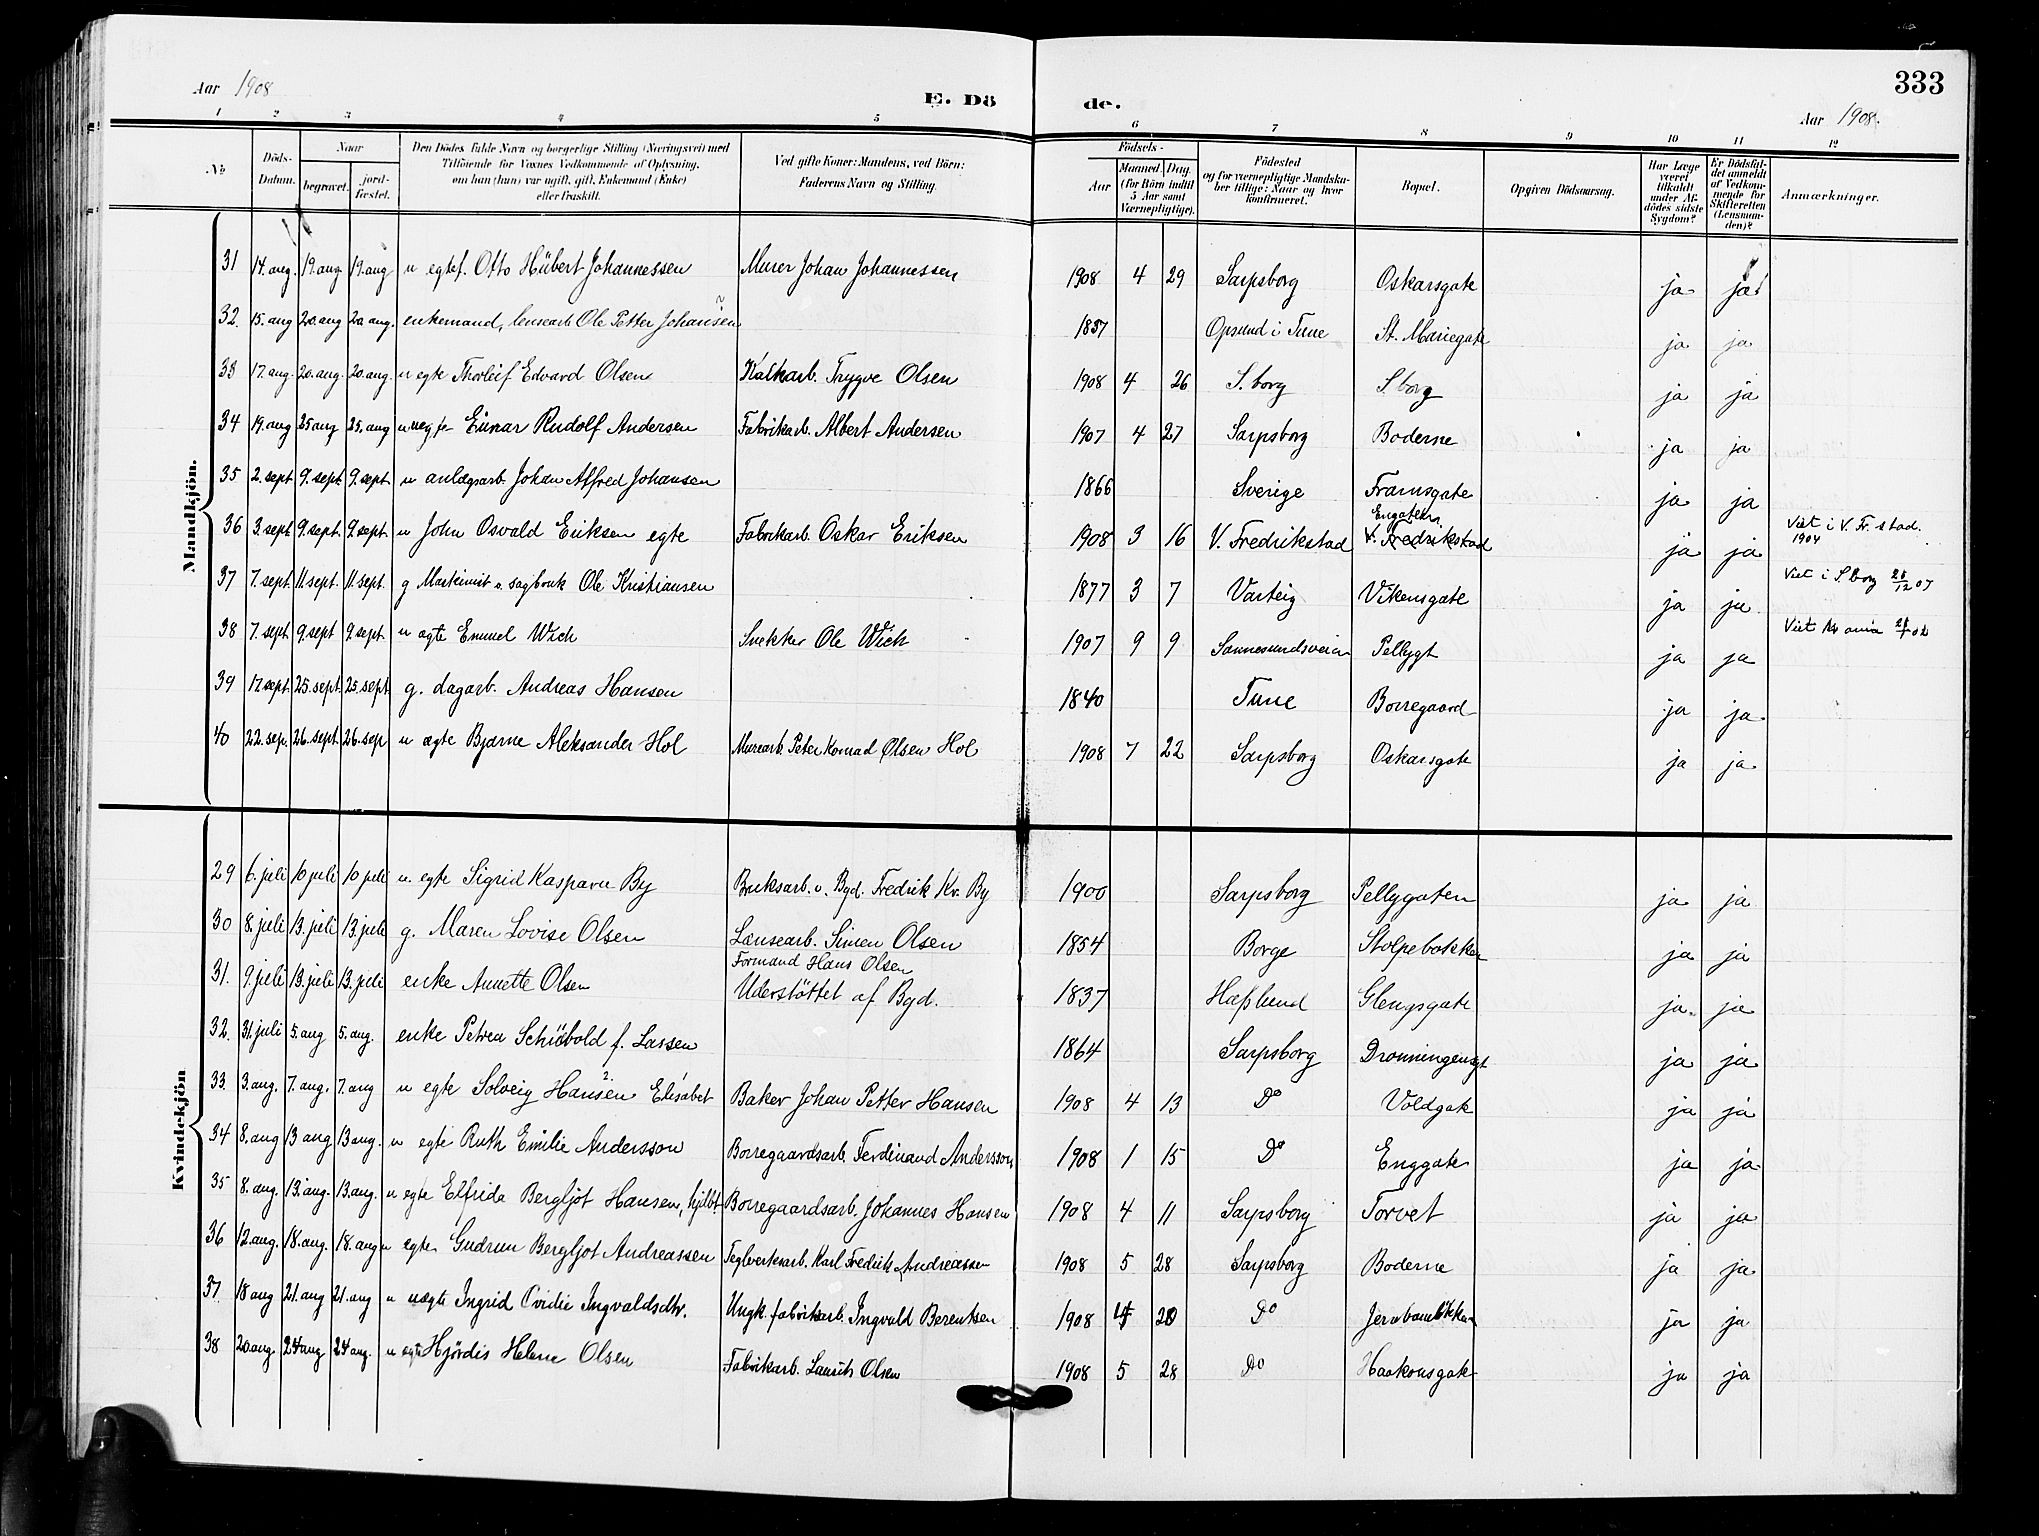 Aar 1908
E. Dö de.
333
Aar 1908.
1 2 3 4 5 6 7 8 9 10 11 12
No
Döds-Datum.
Naar
begravet.
jord-fæstet.
Den Dödes fulde Navn og borgerlige Stilling (Næringsvei) med
Tilföiende for Voxnes Vedkommende af Oplysning,
om han (hun) var ugift, gift, Enkemand (Enke)
eller fraskilt.
Ved gifte Koner: Mandens, ved Börn:
Faderens Navn og Stilling.
Födsels-
Aar
Maaned. Dag.
(for Börn indtil
5 Aar samt
Værnepligtige).
Födested
og for værnepligtige Mandska-
ber tillige: Naar og hvor
konfirmeret.
Bopæl.
Opgiven Dödsaarsag.
Har Læge
været
tilkaldt
under Af-
dödes sidste
Sygdom?
Er Dödsfal-
det anmeldt
af Vedkom-
mende for
Skifteretten
(Lensman-
den)?
Anmærkninger.
Mandkjön.
31 14. aug. 19. aug 19. aug u egtef. Otto Hübert Johannessen Murer Johan Johannessen 1908 4 29 Sarpsborg Oskarsgate ja ja
32. 15. aug 20. aug 20. aug. enkemand, lensearb Ole Petter Johansen 1857 Opsund i Tune St. Mariegate ja ja
33 17. aug. 20. aug. 20. aug. u egte Thorleif Edvard Olsen Kalkarb. Trygve Olsen 1908 4 26 S. borg S. borg ja ja
34 19. aug 25 aug 25. aug u uegte Einar Rudolf Andersen Fabrikarb. Albert Andersen 1907 4 27 Sarpsborg Boderne ja ja
35 2. sept 9. sept. 9. sept. u anlægsarb. Johan Alfred Johansen 1866 Sverige Framsgate ja ja
36 3. sept. 9. sept. 9. sept. u John Osvald Eriksen egte Fabrikarb. Oskar Eriksen 1908 3 16 V. Fredrikstad V. Fredrikstad ja ja Viet i V. Fr. stad. 1904
37 7. sept. 11. sept. 11. sept. g Maskinist v. sagbruk Ole Kristiansen 1877 3 7 Varteig Vikensgate ja ja Viet i S borg 28/12 07
38 7. sept. 9. sept 9. sept. u egte Emuel Wich Snekker Ole Wich 1907 9 9 Sannesundsveien Pellygt ja ja
39 17 sept. 25. sept. 25. sept g. dagarb. Andreas Hansen 1840 Tune Borregaard ja ja
40 22. sep. 26. sept 26. sep u ægte Bjarne Aleksander Hol Murearb. Peter Konrad Olsen Hol 1908 7 22 Sarpsborg Oskarsgate ja ja
Kvindekjön
29 6. juli 10 juli 10 juli u. egte Sigrid Kaspara By Bruksarb. v. Byd. Fredrik Kr. By 1900 Sarpsborg Pellygaten ja ja
30 8. juli 13. juli 13. juli g. Maren Lovise Olsen Lænsearb. Simen Olsen 1854 Borge Stolpebakken ja ja
31. 9. juli 13. juli 13. juli enke Annette Olsen Formand Hans Olsen
Understöttet af Byd. 1837 Hafslund Glengsgate ja ja
32. 31. juli 5. aug 5. aug. enke Petrea Schiöbold f. Lassen 1864 Sarpsborg Dronningensgt ja ja
33. 3. aug. 7. aug. 7. aug u egte Solveig Hansen Elisabet Baker Johan Petter Hansen 1908 4 13 Do Voldgate ja ja
34 8. aug 13 aug 13 aug. u egte Ruth Emilie Andersson Borregaardsarb. Ferdinand Andersson 1908 1 15 Do Enggate ja ja
35 8. aug. 13. aug. 13. aug. u egte Elfrida Bergljot Hansen, hjdbt Borregaardsarb. Johannes Hansen 1908 4 11 Sarpsborg Torvet ja ja
36 12. aug. 18. aug. 18. aug u egte Gudrun Bergljot Andreassen Teglverksarb. Karl Fredrik Andreassen 1908 5 28 Sarpsborg Boderne ja ja
37 18 aug 21. aug 21. aug u uægte Ingrid Ovidie Ingvaldsdtr. Ungk. fabriksarb. Ingvald Berentsen 1908 4 20 Do Jernbaneløkken ja ja
38 20. aug. 24 aug 24 aug. u egte Hjördis Helene Olsen Fabrikarb. Laurits Olsen 1908 5 28 Do Haakonsgate ja ja